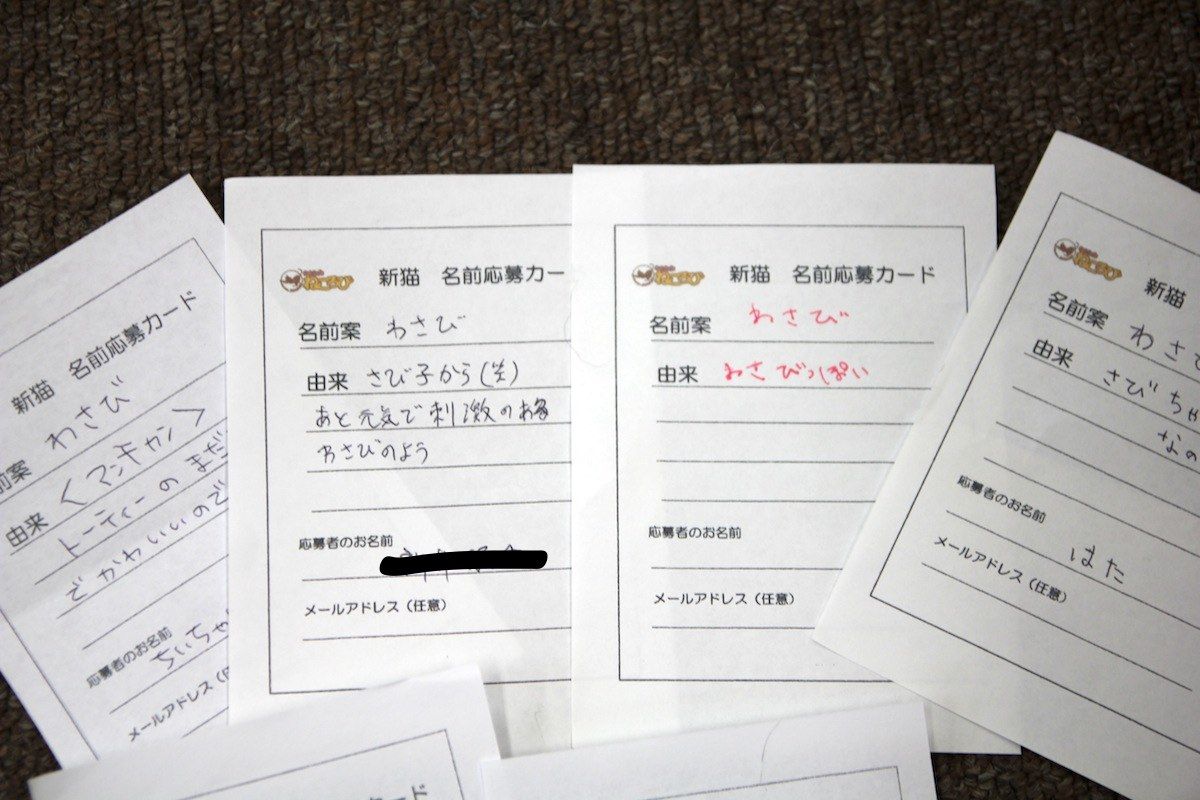 新猫 名前応募カード
前案 わさび
由来 <マンチカン>
トーティーの まだ
で かわいいので
応募者のお名前
ちぃちゃ
メールアドレス
ねこさび
新猫 名前応募カー
名前案 わさび
由来 さび子から(笑)
あと元気で刺激のお
わさびのよう
応募者のお名前
メールアドレス(任意)
ねこさび
新猫 名前応募カード
名前案 わさび
由来 わさびっぽい
応募者のお名前
メールアドレス(任意)
ねこさび
新猫
名前案 わさ
由来 さびちゃ
なの
応募者のお名前
はた
メールアドレス(任意)
新猫 名前応募カード